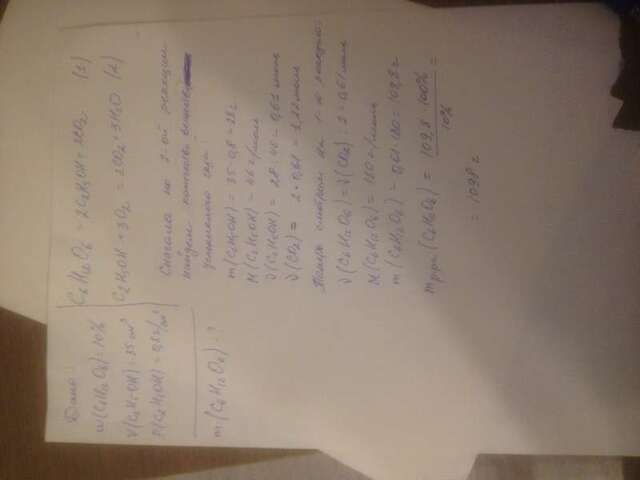 Дано:
ω(C6H12O6) = 10%
V(C2H5OH) = 35 см³
ρ(C2H5OH) = 0,8 г/см³
m(C6H12O6) - ?
C6H12O6 = 2C2H5OH + 2CO2 (1)
C2H5OH + 3O2 = 2CO2 + 3H2O (2)
Сначала по 2-ой реакции
найдем количество вещества
углекислого газа:
m(C2H5OH) = 35·0,8 = 28г
M(C2H5OH) = 46 г/моль
ν(C2H5OH) = 28 : 46 = 0,61 моль
ν(CO2) = 2·0,61 = 1,22 моль
Теперь смотрим на 1-ю реакцию:
ν(C6H12O6) = ν(CO2) : 2 = 0,61 моль
M(C6H12O6) = 180 г/моль
m(C6H12O6) = 0,61·180 = 109,8 г
m руды (C6H12O6) = 109,8·100% / 10% =
= 1098 г